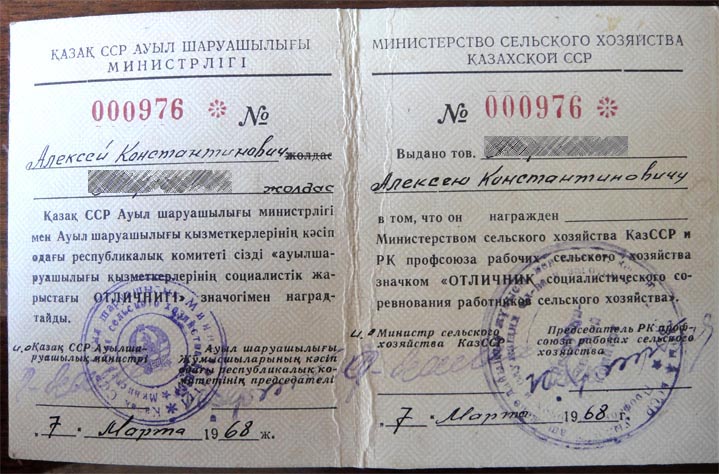 ҚАЗАҚ ССР АУЫЛ ШАРУАШЫЛЫҒЫ
МИНИСТРЛІГІ
000976 * №
Алексей Константинович жолдас
жолдас
Қазақ ССР Ауыл шаруашылығы министрлігі
мен Ауыл шаруашылығы қызметкерлерінің кәсіп
одағы республикалық комитеті сізді «ауылша-
руашылығы қызметкерлерінің социалистік жа-
рыстағы ОТЛИЧНИГІ» значогімен наград-
тайды.
и.о Қазақ ССР Ауылша-
руашылық министрі
Ауыл шаруашылығы
Жұмысшыларының кәсіп
одағы республикалық ко-
митетінің председателі
„7„ Марта 1968 ж.
МИНИСТЕРСТВО СЕЛЬСКОГО ХОЗЯЙСТВА
КАЗАХСКОЙ ССР
№ 000976 *
Выдано тов.
Алексею Константиновичу
в том, что он награжден
Министерством сельского хозяйства КазССР и
РК профсоюза рабочих сельского хозяйства
значком «ОТЛИЧНИК социалистического со-
ревнования работников сельского хозяйства».
и.о Министр сельского
хозяйства КазССР
Председатель РК проф-
союза рабочих сельского
хозяйства
„7„ Марта 1968 г.